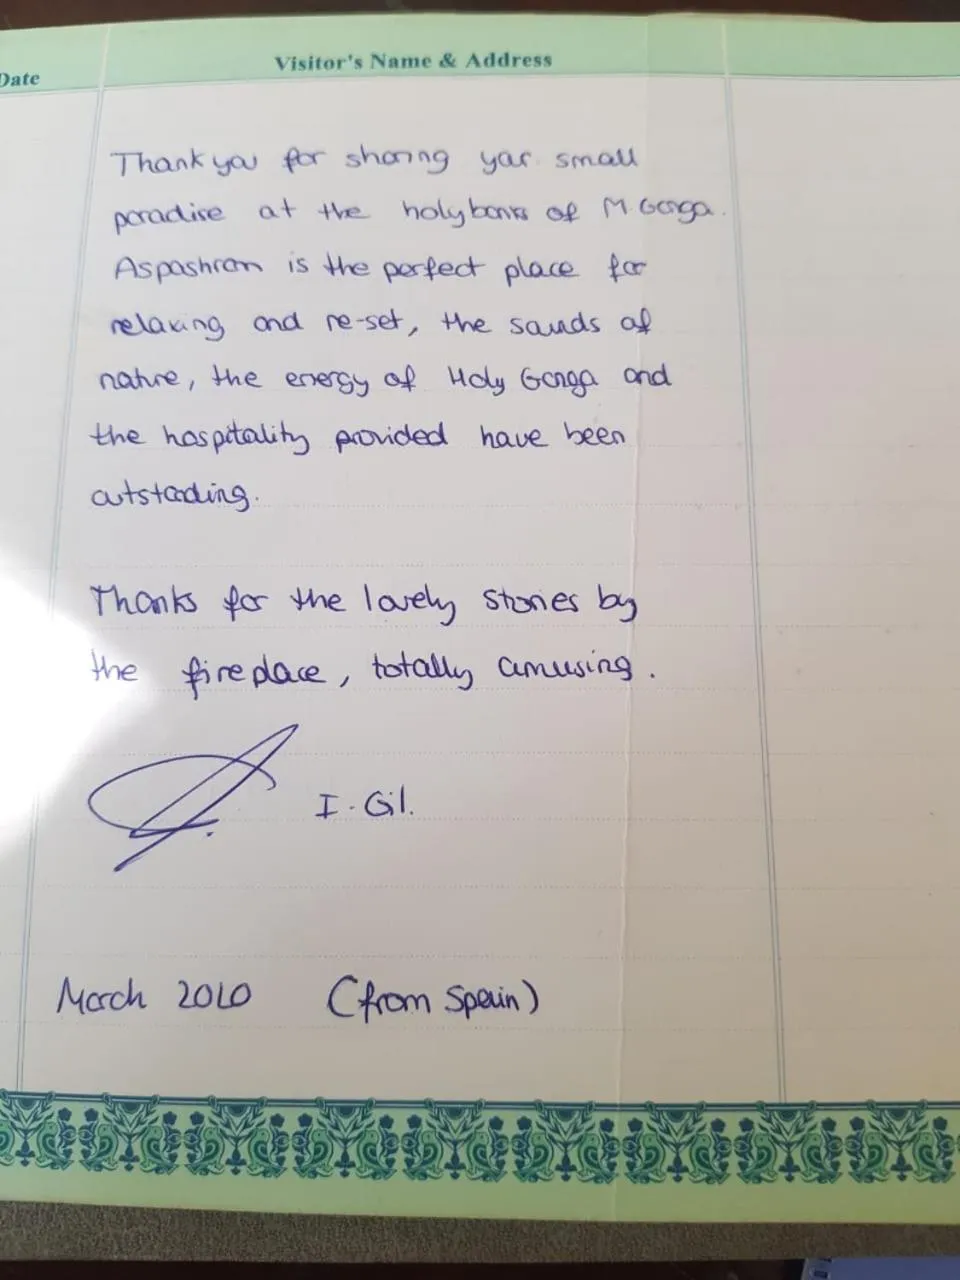 Date
Visitor's Name & Address
Thank you for sharing your small
paradise at the holy banks of M Ganga.
Aspashram is the perfect place for
relaxing and re-set, the sounds of
nature, the energy of Holy Ganga and
the hospitality provided have been
outstanding.
Thanks for the lovely stories by
the fireplace, totally amusing.
I. Gil.
March 2020 (from Spain)